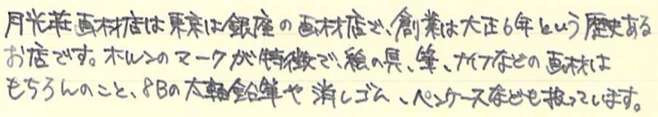 月光荘画材店は東京は銀座の画材店で、創業は大正6年という歴史ある
お店です。ホルンのマークが特徴で、絵の具、筆、ナイフなどの画材は
もちろんのこと、8Bの太軸鉛筆や消しゴム、ペンケースなども扱っています。